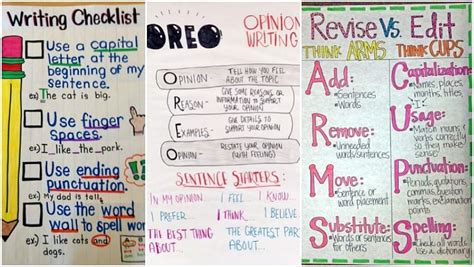 Writing Checklist
Use a capital
letter at the
beginning of my
sentence.
ex) The cat is big.
Use finger
spaces.
ex) I_like_the_park.
Use ending
punctuation.
ex) My dad is tall.
Use the word
wall to spell
words.
ex) I like cats and
dogs.
OREO
OPINION
WRITING
OPINION
TELL HOW YOU FEEL
ABOUT THE TOPIC
REASON-
GIVE SOME REASONS OR
INFORMATION TO SUPPORT
YOUR OPINION
EXAMPLES-
GIVE DETAILS TO
SUPPORT YOUR OPINION
OPINION-
RESTATE YOUR OPINION
(WITH FEELING)
SENTENCE STARTERS:
IN MY OPINION I FEEL I KNOW...
I PREFER... I THINK... I BELIEVE
THE BEST THING
ABOUT...
THE GREATEST PART
ABOUT...
Revise Vs. Edit
THINK ARMS THINK CUPS
Add:
•Sentences
•Words
Remove:
•Unneeded
words/sentences
Move:
•Sentence or
word placement
Substitute:
•Words or sentences
for others
Capitalization:
•Names, places,
months, titles
•I
Usage:
•Match nouns/
verbs correctly
Punctuation:
•Periods, quotations,
commas, question
marks,
Spelling:
•Check all words
•use a dictionary